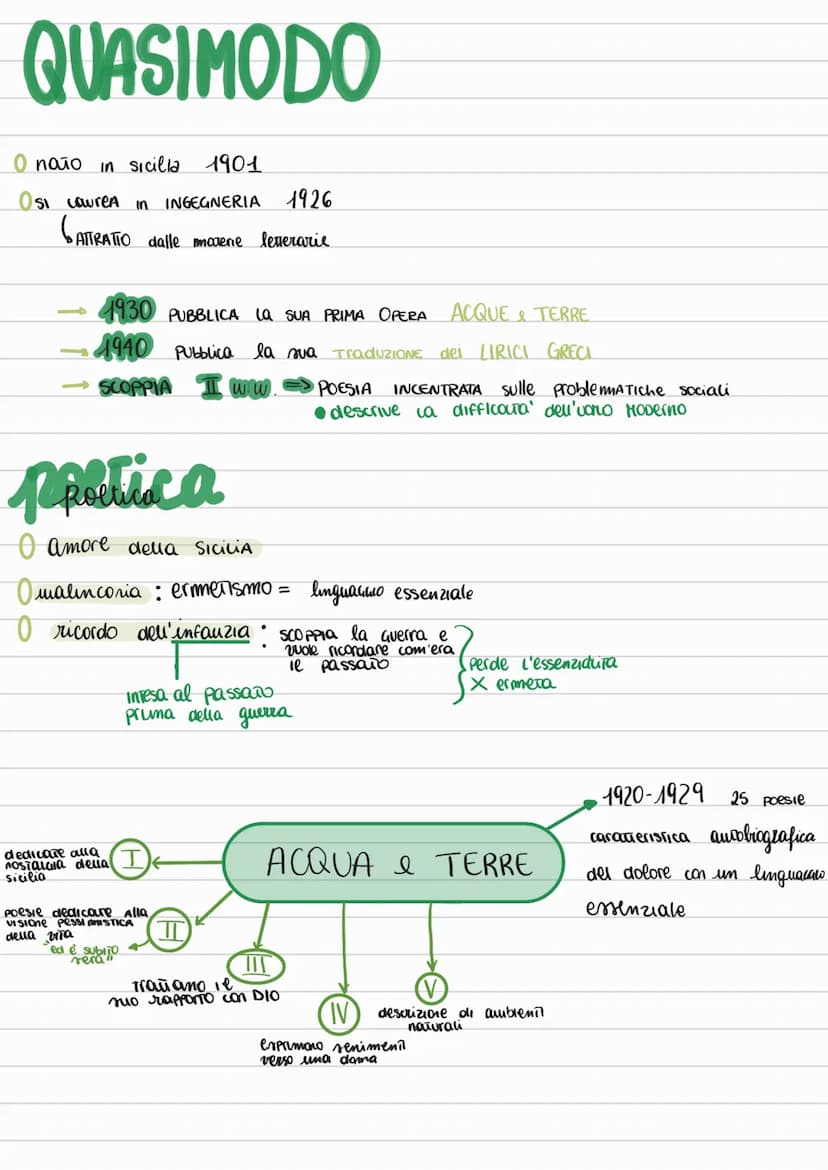 QUASIMODO
nato in sicilia 1901
si laurea in INGEGNERIA 1926
ATTRATIO dalle materie letterarie
→ 1930 PUBBLICA la SUA PRIMA OPERA ACQUE e TERRE
→ 1940 Pubblica la sua TRADUZIONE dei LIRICI GRECI
→ SCOPPIA II WW. => POESIA INCENTRATA sulle problematiche sociali
• descrive la difficoltà dell'uomo MODERNO
poetica
poetica
amore della SICILIA
malinconia : ermetismo = linguaggio essenziale
ricordo dell'infanzia : scoppia la guerra e
vuole ricordare com'era
il passato
perde l'essenzialità
X ermeta
intesa al passato
prima della guerra
1920-1929 25 poesie
caratteristica autobiografica
del dolore con un linguaggio
essenziale
ACQUA e TERRE
dedicate alla
nostalgia della
sicilia
I
poesie dedicate alla
visione pessimistica
della vita
"ed è subito
sera"
II
III
trattano il
suo rapporto con DIO
IV
esprimono senimenti
verso una donna
V
descrizione di ambienti
naturali